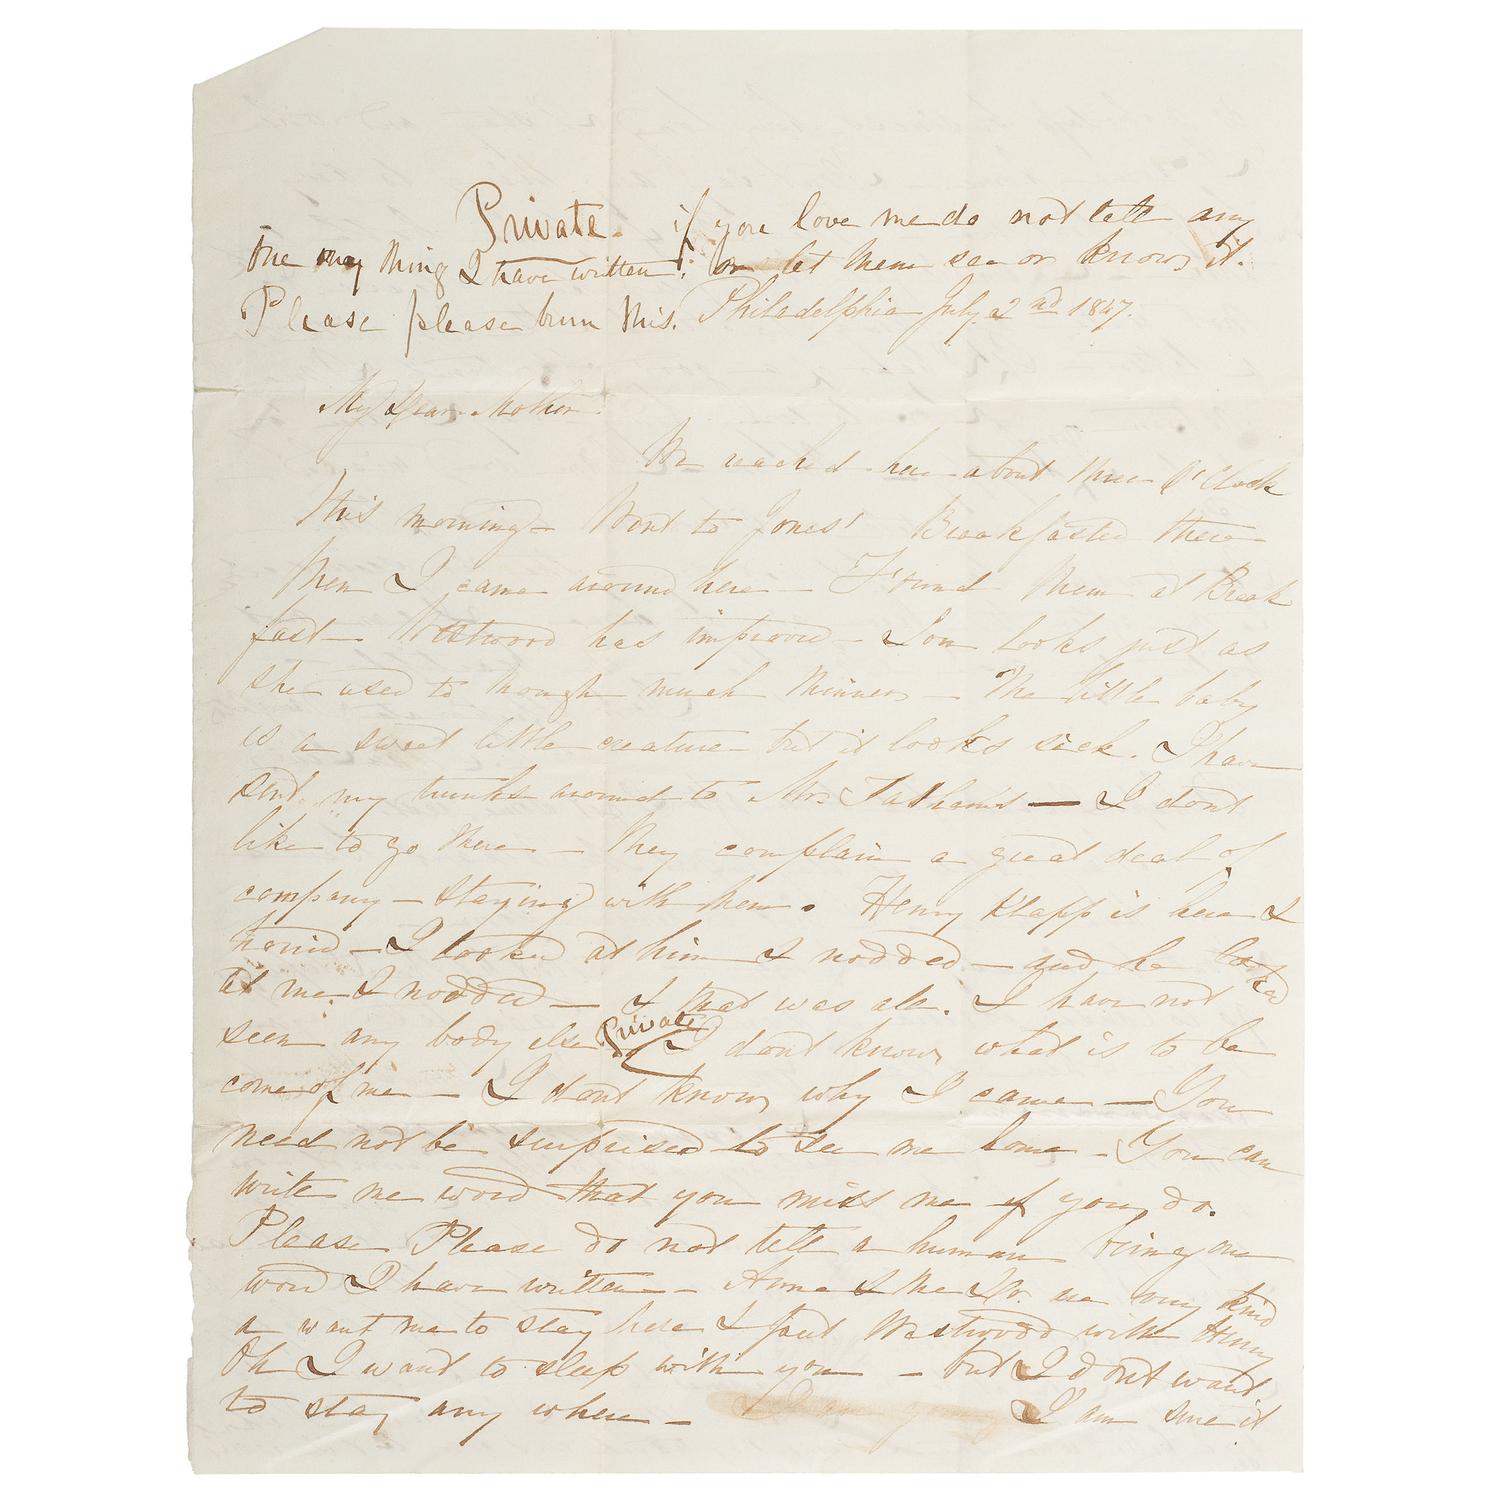 Private. if you love me do not tell any
one any thing I have written; or let them see or know it.
Please please burn this. Philadelphia July 2nd 1847.
My Dear Mother.
We reached here about three O'Clock
this morning - Went to Jones' Breakfasted there -
then I came around here - Found them at Break
fast - Westwood has improved - Lou looks just as
she used to though much thinner - The little baby
is a sweet little creature but it looks sick. I have
sent my trunks around to Mrs Tatham's - I dont
like to go there - they complain a great deal of
company - staying with them. Henry Klapp is here &
horrid - I looked at him & nodded - and he looked
at me & nodded - & that was all. I have not
seen any body else Private I dont know what is to be
come of me - I dont know why I came - You
need not be surprised to see me home - You can
write me word that you miss me if you do.
Please Please do not tell a human being one
word I have written - & the Dr. are very kind
& want me to stay here & put Westwood with Henry
Oh I want to sleep with you - but I dont want
to stay any where - I am sure it